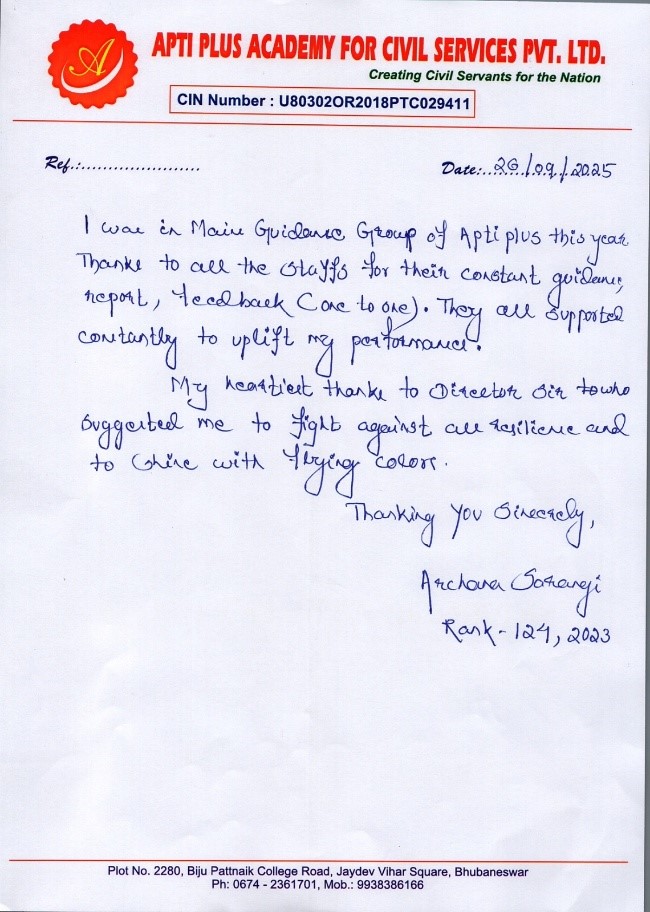 A
APTI PLUS ACADEMY FOR CIVIL SERVICES PVT. LTD.
Creating Civil Servants for the Nation
CIN Number : U80302OR2018PTC029411
Ref.:...................... Date:..26/09/2025
I was in Main Guidance Group of Aptiplus this year
Thanks to all the staffs for their constant guidance,
report, feedback (one to one). They all supported
constantly to uplift my performance.
My heartiest thanks to Director Sir who
suggested me to fight against all resilience and
to shine with flying colors.
Thanking You Sincerely,
Archana Sarangi
Rank - 124, 2023
Plot No. 2280, Biju Pattnaik College Road, Jaydev Vihar Square, Bhubaneswar
Ph: 0674 - 2361701, Mob.: 9938386166